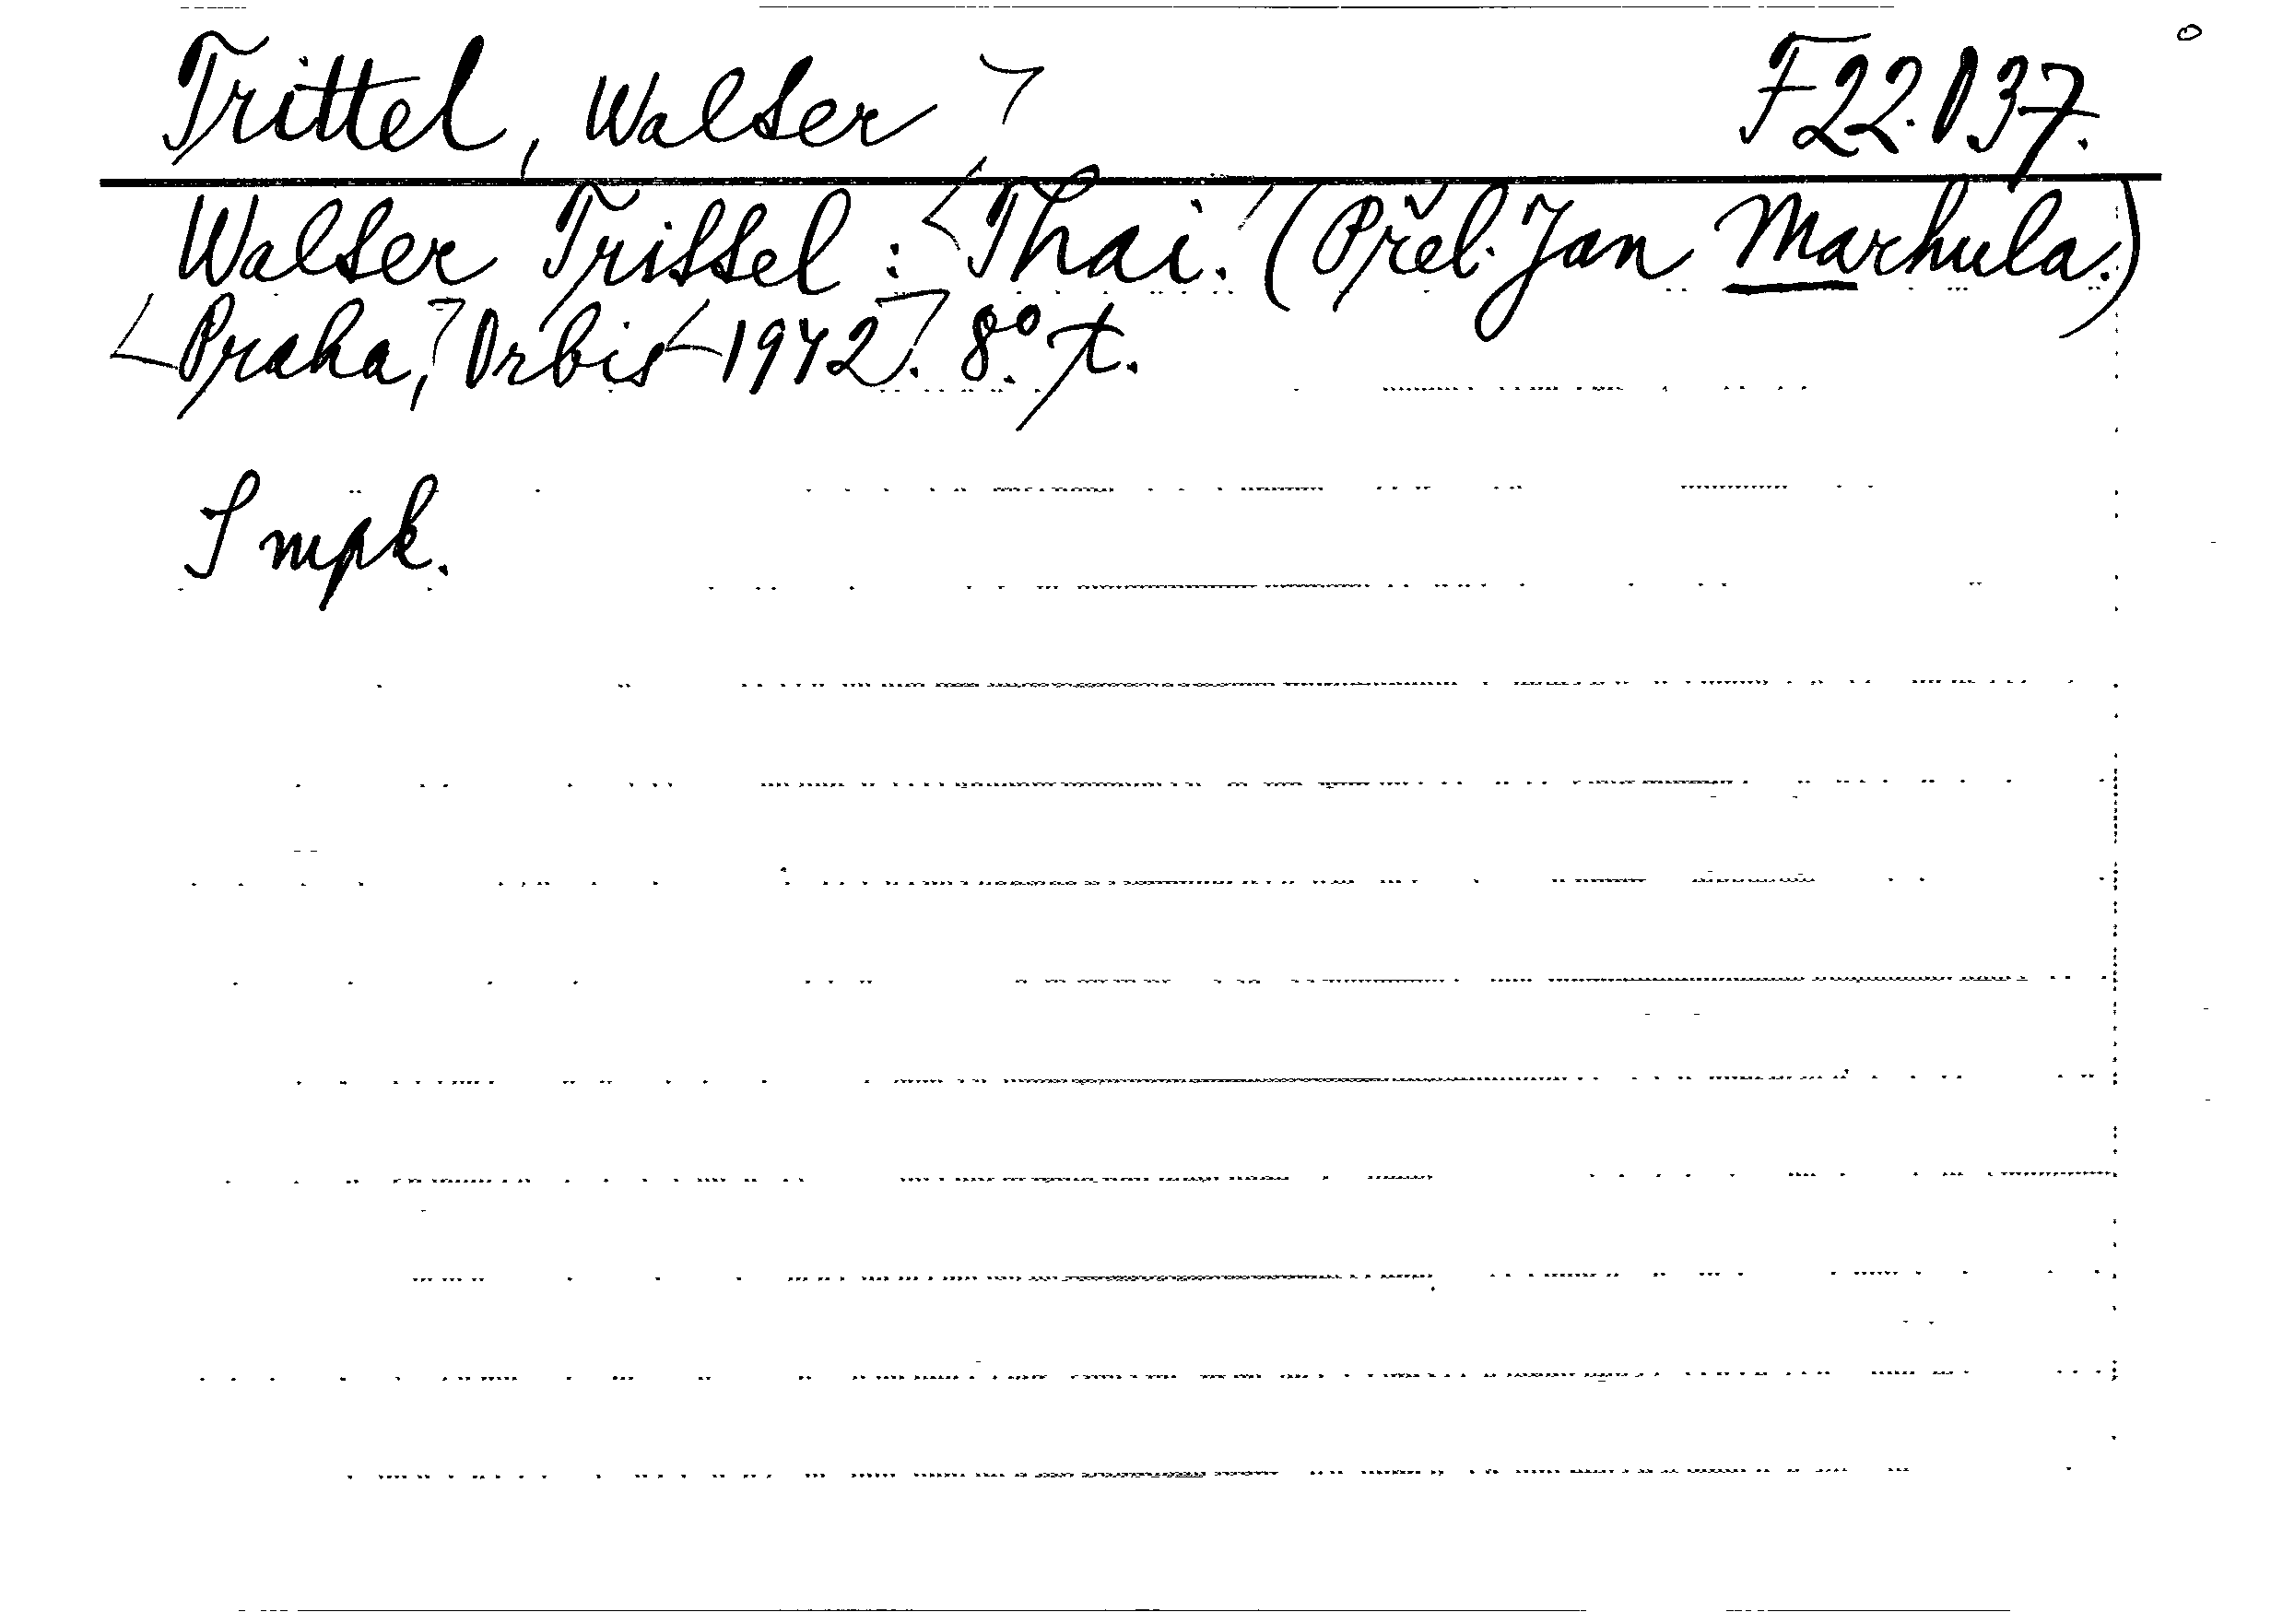 Trittel, Walter F 22.037.
Walter Trittel: Thai. (Přel. Jan Marhula.)
Praha, Orbis 1942. 8°. X.
S mpk.